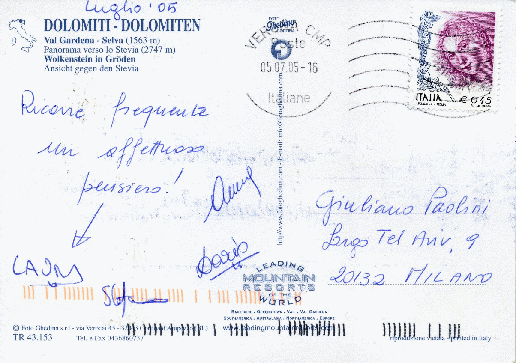 Luglio '05
DOLOMITI - DOLOMITEN
Val Gardena - Selva (1563 m)
Panorama verso lo Stevia (2747 m)
Wolkenstein in Gröden
Ansicht gegen den Stevia
Foto
Ghedina
05.07.05 - 16
Poste
Italiane
ITALIA
€ 0,45
Ricorre frequente
un affettuoso
pensiero!
Anna
LAURA
Giuliano Paolini
Largo Tel Aviv, 9
20132 MILANO
LEADING
MOUNTAIN
RESORTS
OF THE
WORLD
© Foto Ghedina s.r.l. - via Verocai 43
TR 43.153
riproduzione vietata - printed in Italy